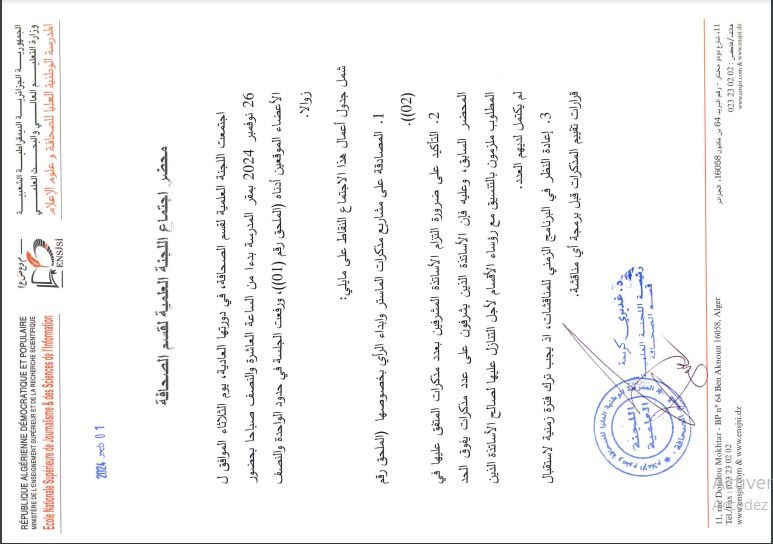 RÉPUBLIQUE ALGÉRIENNE DÉMOCRATIQUE ET POPULAIRE
MINISTÈRE DE L'ENSEIGNEMENT SUPÉRIEUR ET DE LA RECHERCHE SCIENTIFIQUE
Ecole Nationale Supérieure de Journalisme & des Sciences de l'Information
ENSJSI
الجمهوريـــة الجزائريـــة الديمقراطيـــة الشعبيـــة
وزارة التعليـــم العالـــي والبحـــث العلمـــي
المدرسة الوطنية العليا للصحافة و علوم الإعلام
01 ديسمبر 2024
محضر اجتماع اللجنة العلمية لقسم الصحافة
اجتمعت اللجنة العلمية لقسم الصحافة، في دورتها العادية، يوم الثلاثاء الموافق ل
26 نوفمبر 2024 بمقر المدرسة بدءا من الساعة العاشرة والنصف صباحا بحضور
الأعضاء الموقعين أدناه (الملحق رقم (01))، ورفعت الجلسة في حدود الواحدة والنصف
زوالا.
شمل جدول أعمال هذا الاجتماع النقاط على مايلي:
1. المصادقة على مشاريع مذكرات الماستر وإبداء الرأي بخصوصها (الملحق رقم
(02)).
2. التأكيد على ضرورة التزام الأساتذة المشرفين بعدد مذكرات المتفق عليها في
المحضر السابق، وعليه فإن الأساتذة الذين يشرفون على عدد مذكرات يفوق الحد
المطلوب ملزمون بالتنسيق مع رؤساء الأقسام لأجل التنازل عليها لصالح الأساتذة الذين
لم يكتمل لديهم العدد.
3. إعادة النظر في البرنامج الزمني للمناقشات، اذ يجب ترك فترة زمنية لاستقبال
قرارات تقييم المذكرات قبل برمجة أي مناقشة.
د. غديري كريمة
رئيسة اللجنة العلمية
قسم الصحافة
اللجنة
العلمية
11, rue Doudou Mokhtar - BP n° 64 Ben Aknoun 16058, Alger
Tel./Fax : 023 23 02 02
www.ensjsi.com & www.ensjsi.dz
11، شارع دودو مختار - رقم البريد 64 بن عكنون 16058، الجزائر
هاتف/فاكس : 02 02 23 023
www.ensjsi.com & www.ensjsi.dz
Activer
Accédez